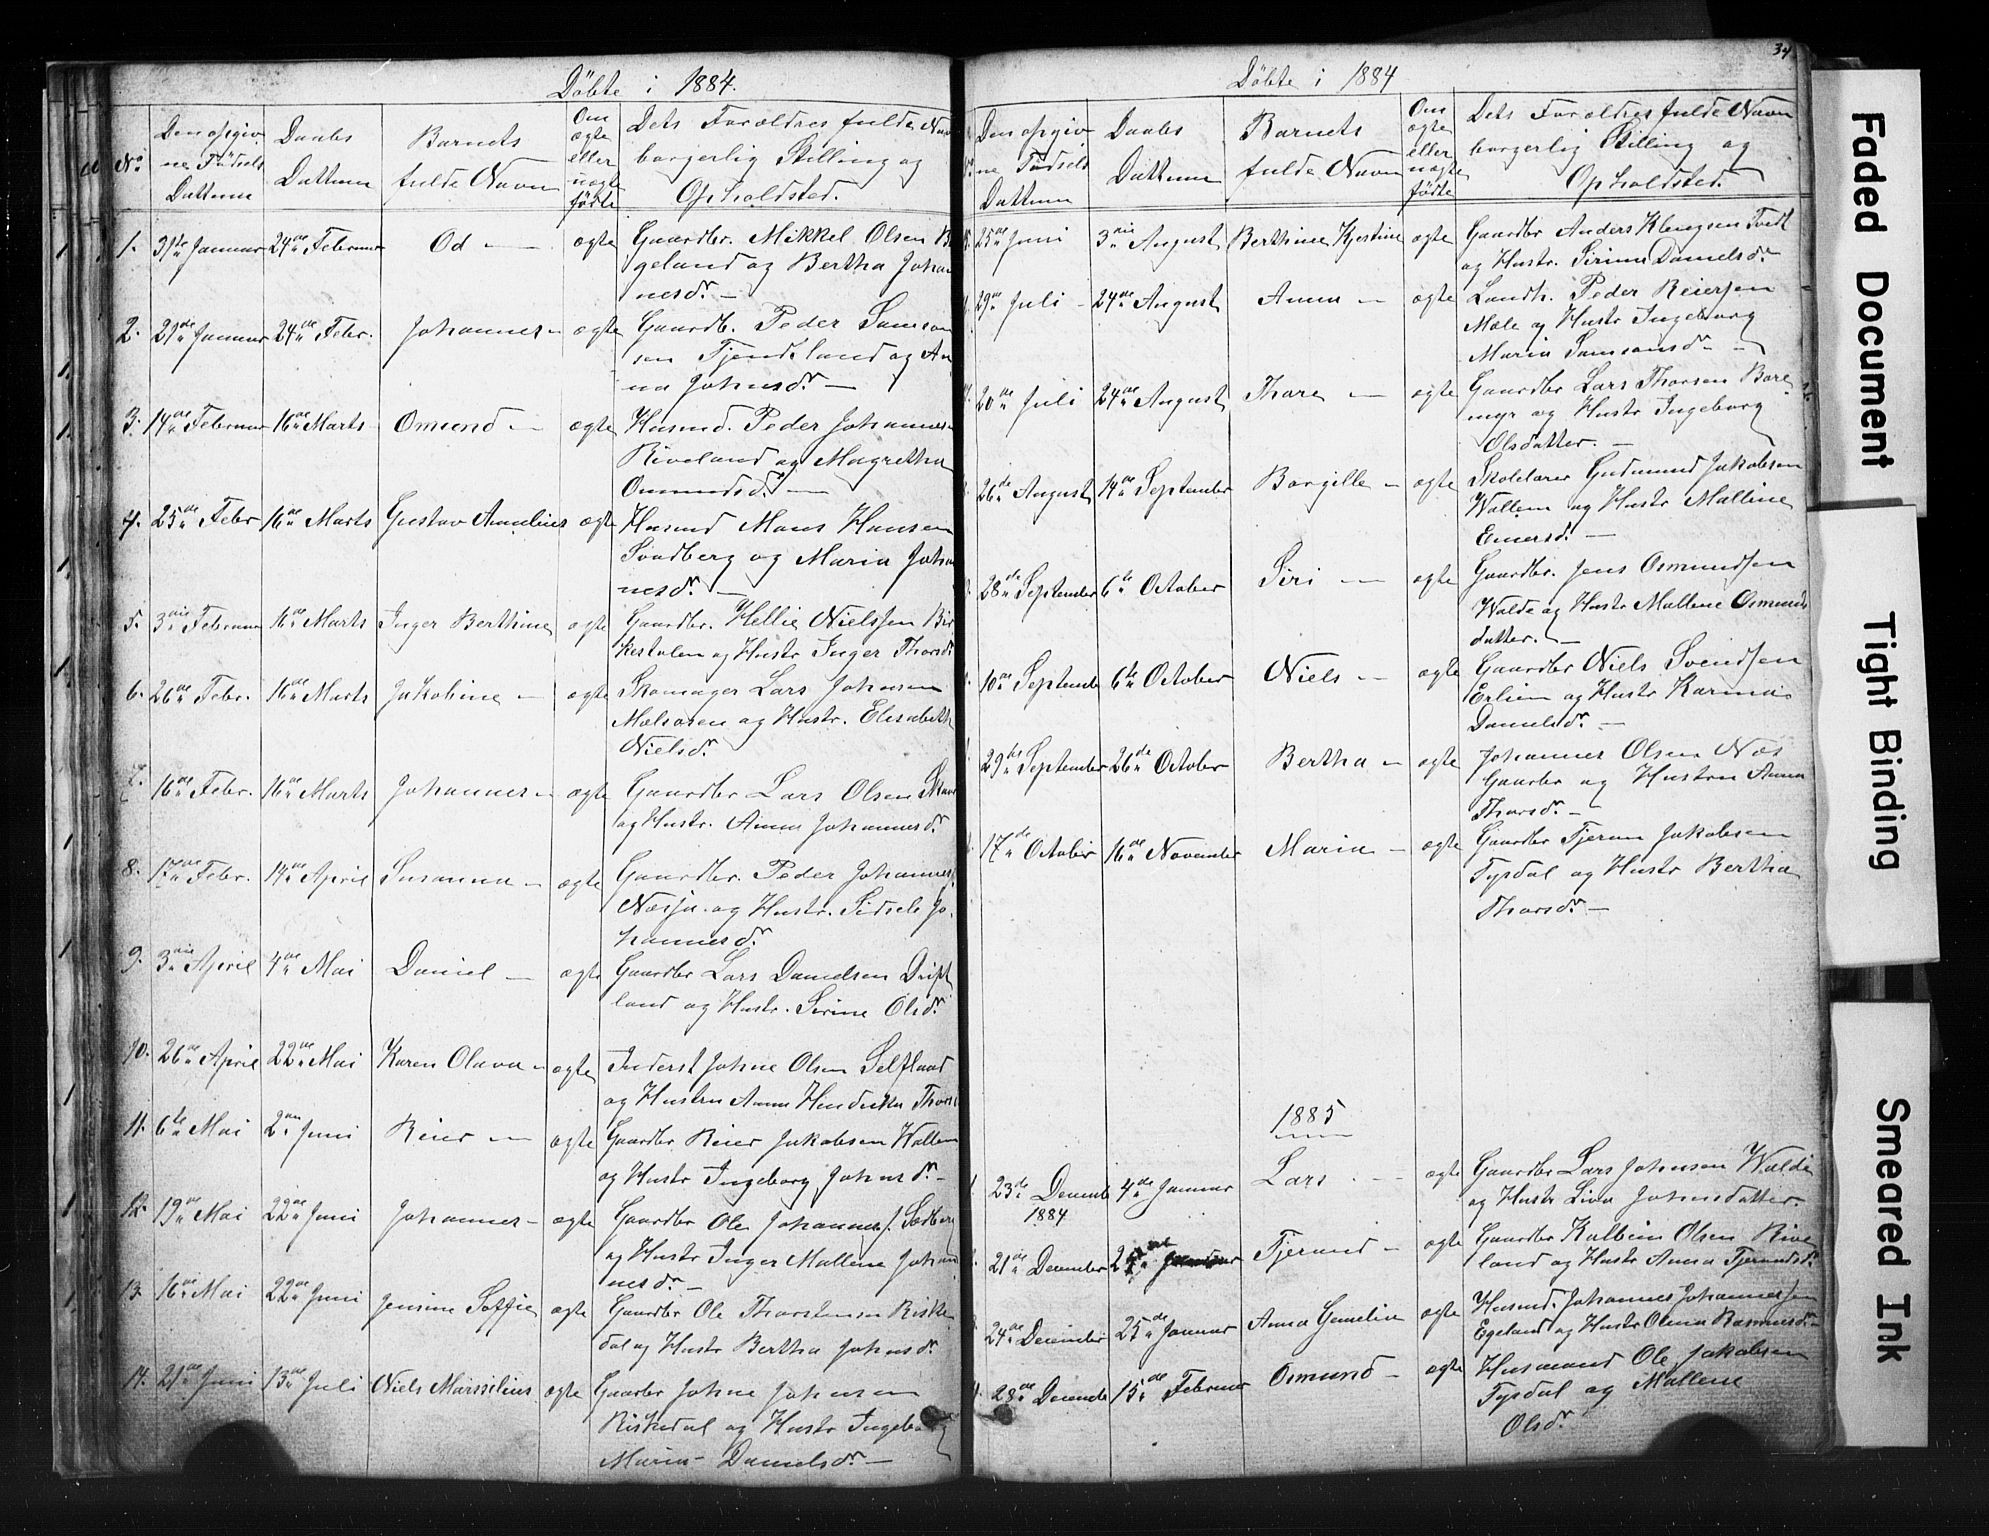 34
Döbte i 1884.
No. Den opgivne Födsels Dattum Daabs Dattum Barnets fulde Navn Om ægte eller uægte födte Dets Forældres fulde Navn borgerlig Stilling og Opholdsted.
1. 31te Januar 24de Februar Od — ægte Gaardbr. Mikkel Olsen
geland og Bertha Johan
nesdr. —
2. Januar 24de Febr. Johannes — ægte Gaardb. Peder Samson
sen Tjendeland og An
na Johnsdr. —
3. 14de Februar 16de Marts Omund — ægte Husmd. Peder Johannes
Riveland og Magretha
Omundsdr. —
4. 25de Febr 16de Marts Gustav Amelius ægte Husmd Mons Hansen
Svadberg og Maria Johan
nesdr. —
5. 3die Februar 16de Marts Inger Berthine ægte Gaardbr. Hellie Nielssen Bir
kestølen og Hustr Inger Thorsdr
6. 26de Febr. 16de Marts Jakobine — ægte Skomager Lars Johnsen
og Hustr. Elisabeth
Nielsdr.
7. 16de Febr. 16de Marts Johannes — ægte Gaardbr Lars Olsen
og Hustr. Anna Johannesdr.
8. 17de Febr. 14de April Susanna — ægte Gaardbr. Peder Johannes
og Hustr. Sidsele Jo
hannesdr.
9. 3die April 4de Mai Daniel — ægte Gaardbr Lars Danielsen
land og Hustr. Sirine Olsdr.
10. 26de April 22de Mai Karen Olava — ægte Inderst Johne Olsen
og Hustru Anna Hendrikka
11. 6te Mai 2den Juni Reier — ægte Gaardbr Reier Jakobsen Wallem
og Hustr Ingeborg Johnsdr. —
12. 19de Mai 22de Juni Johannes — ægte Gaardbr Ole Johannes
og Hustr Inger Mallene Johan
nesdr. —
13. 16de Mai 22de Juni Jensine Soffie ægte Gaardbr Ole Thorstensen Riske
dal og Hustr Bertha Johnsdr.
14. 21de Juni 13de Juli Niels Marsselius ægte Gaardbr Johne Johnsen
Riskedal og Hustr Ingeborg
Maria Danielsdr. —
Döbte i 1884
Den opgivne Tödsels Dattum Daabs Dattum Barnets fulde Navn Om ægte eller uægte födte Dets Foraldres fulde Navn borgerlig Stilling og Opholdsted.
25de Juni 3die August Berthine Kjerstine ægte Gaardbr Anders Klengsen Tvedt
og Hustr. Sirina Danielsdr
29de Juli 24de August Anna — ægte Landh. Peder Reiersen
Mæle og Hustr Ingeborg
Maria Samsonsdr —
20de Juli 24de August Thore — ægte Gaardbr Lars Thorsen Bore
myr og Hustr Ingeborg
Olsdatter. —
26de August 14de September Borgille — ægte Skolelærer Gudmund Jakobsen
Wallem og Hustr Mallene
Einersd. —
28de September 6te October Siri — ægte Gaardbr. Jens Osmundsen
Walde og Hustr Mallene Osmunds
datter. —
10de September 6te October Niels — ægte Gaardbr Niels Svendsen
og Hustr Karina
Danielsdr. —
29de September 26de October Bertha — ægte Johannes Olsen Næs
Gaardbr og Hustru Anna
Thorsdr —
17de October 16de November Maria — ægte Gaardbr Tjeran Jakobsen
Tysdal og Hustr Bertha
Thorsdr —
1885
23de December 1884 4de Januar Lars — ægte Gaardbr Lars Johnsen Walde
og Hustr Lina Johnsdatter
21de December Tjerand — ægte Gaardbr Kalbein Olsen Rive
land og Hustr Anna Tjerandsdr
24de December 25de Januar Anna Gemelia ægte Husmd. Johannes Johannessen
Egeland og Hustr Olena Rasmusdr
28de December 15de Februar Osmund — ægte Husmand Ole Jakobsen
Tysdal og Mallene
Olsdr
Faded Document
Tight Binding
Smeared Ink